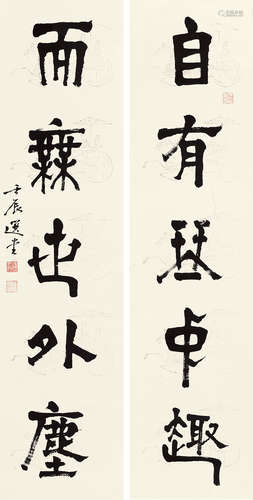 自有琴中趣
而無世外塵
壬辰選堂